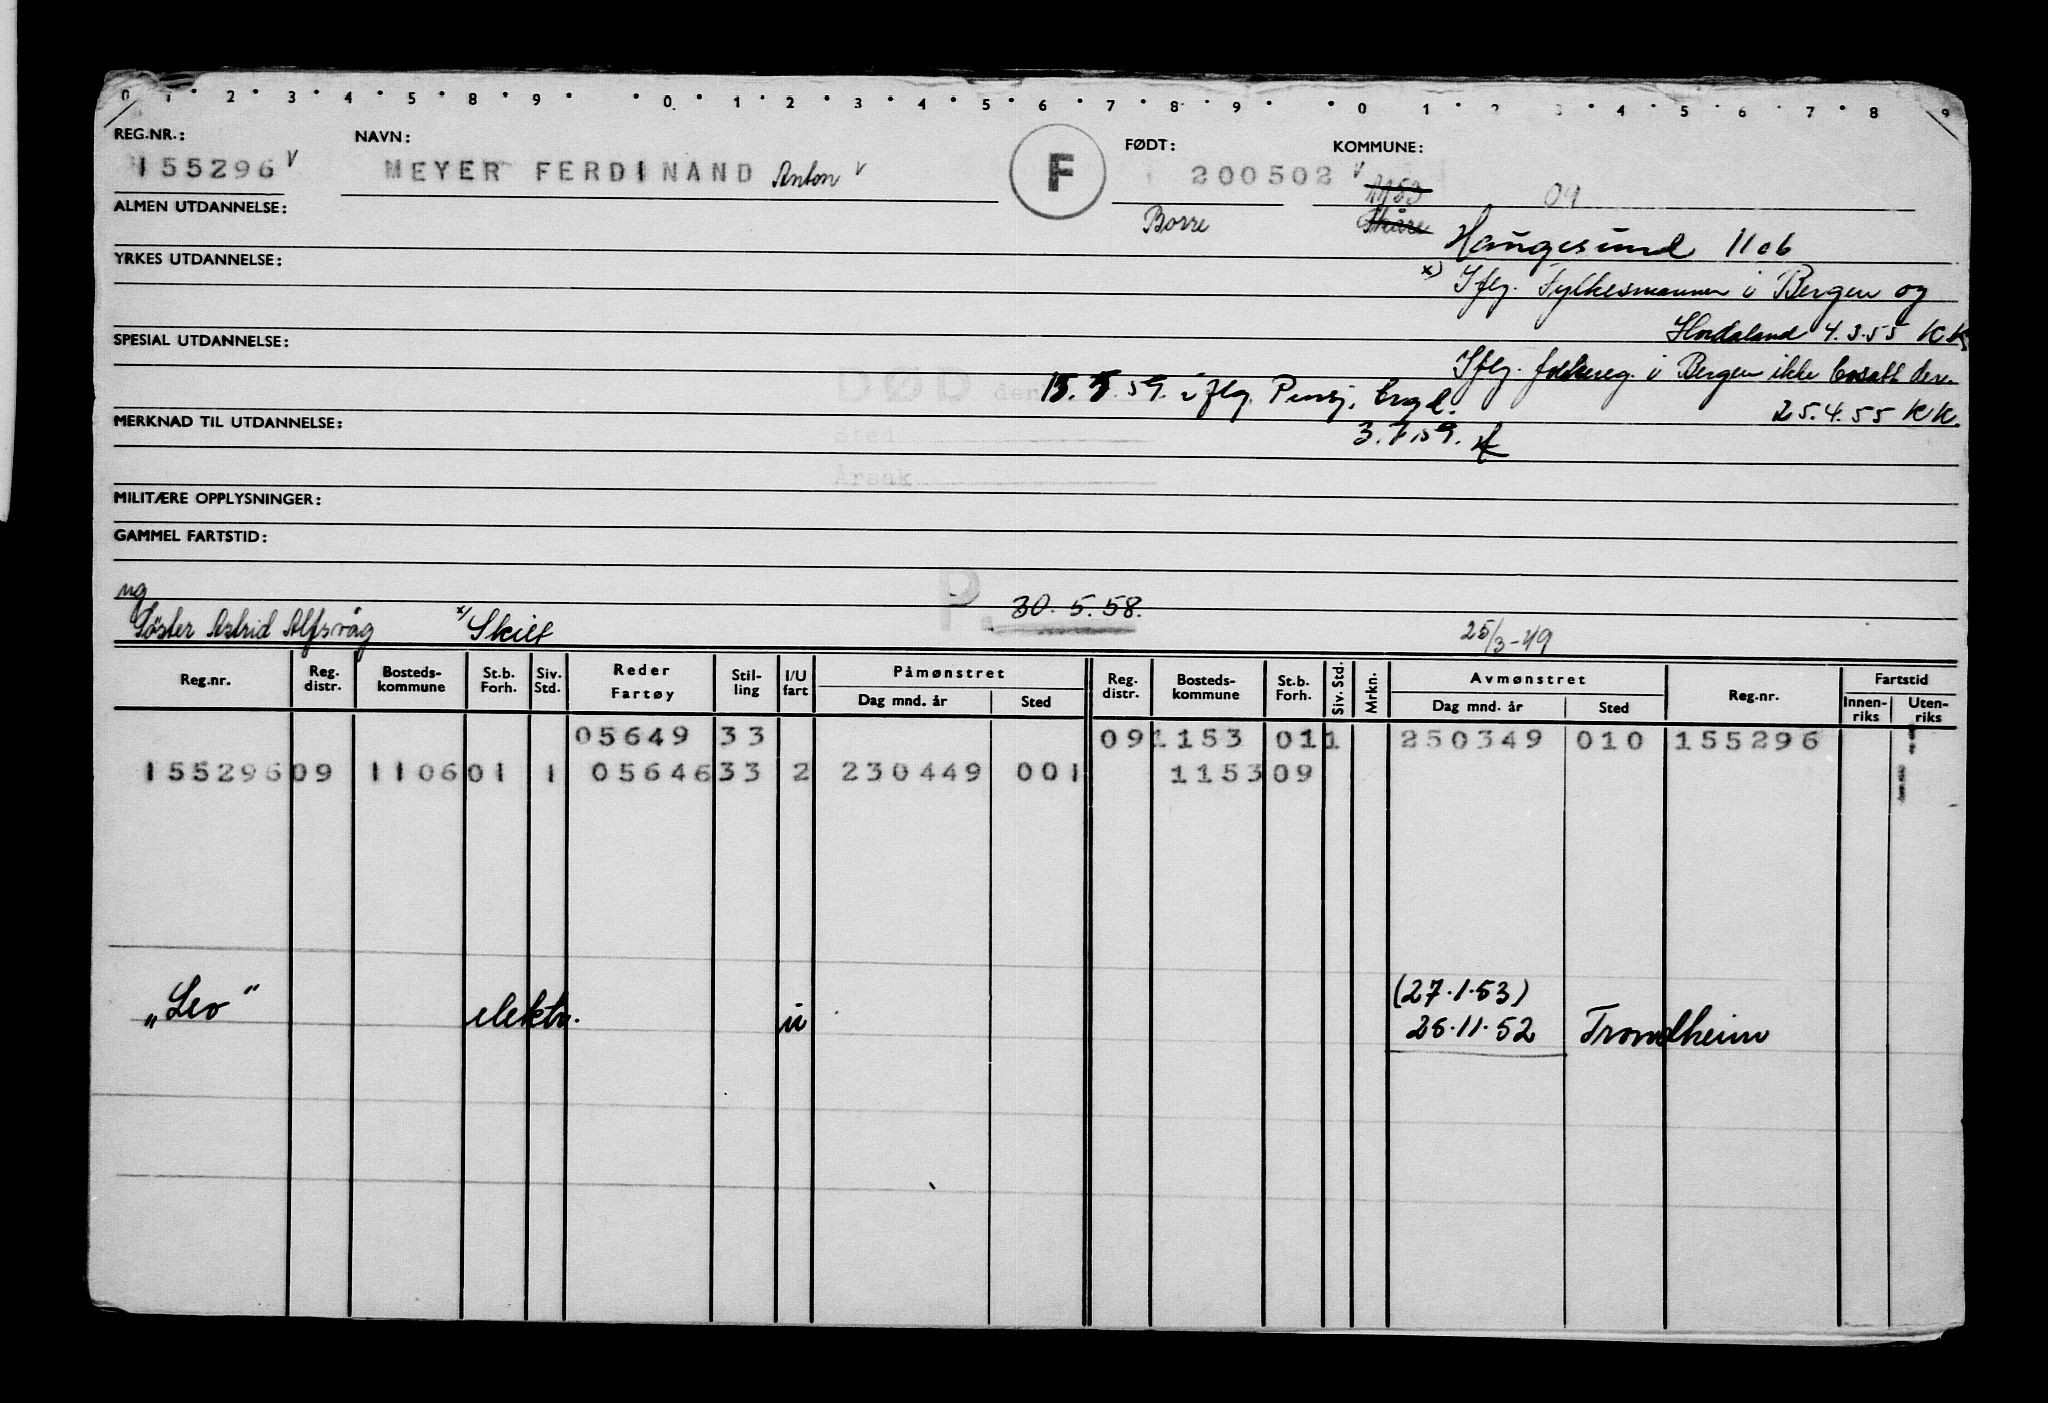 0 1 2 3 4 5 8 9 0 1 2 3 4 5 6 7 8 9 0 1 2 3 4 5 6 7 8 9
REG.NR.: NAVN: F FØDT: KOMMUNE:
155296 V MEYER FERDINAND Anton V 200502 V 1153 09
ALMEN UTDANNELSE: Borre Skåre
Haugesund 1106
YRKES UTDANNELSE:
x) Iflg. Fylkesmannen i Bergen og
Hordaland 4.3.55 KK
SPESIAL UTDANNELSE:
Iflg. folkereg. i Bergen ikke bosatt der.
DØD den 15.5.59. iflg. Pensj.
25.4.55 KK.
MERKNAD TIL UTDANNELSE:
Sted 3.7.59.
Årsak
MILITÆRE OPPLYSNINGER:
GAMMEL FARTSTID:
ug
P. 30.5.58.
Søster Astrid Alfsvåg x) Skilt 25/3-49
Reg.nr. Reg. distr. Bosteds-kommune St.b. Forh. Siv. Std. Reder Fartøy Stil-ling I/U fart Påmønstret Dag mnd. år Sted Reg. distr. Bosteds-kommune St.b. Forh. Siv. Std. Mrkn. Avmønstret Dag mnd. år Sted Reg.nr. Fartstid Innen-riks Uten-riks
05649 33 09 1153 01 1 250349 010 155296
155296 09 1106 01 1 05646 33 2 230449 001 1153 09
(27.1.53)
"Leo" elektr. u 26.11.52 Trondheim